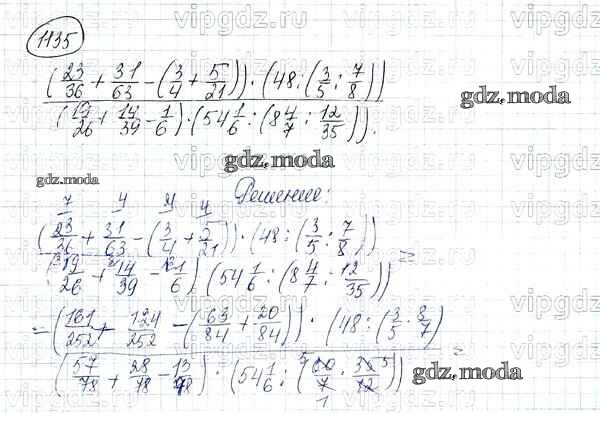 1135
(23/36 + 31/63 - (3/4 + 5/21)) · (48 : (3/5 : 7/8))
(19/26 + 14/39 - 1/6) · (54 1/6 : (8 4/7 : 12/35)).
gdz.moda
gdz.moda
gdz.moda
Решение:
7 4 21 4
(23/36 + 31/63 - (3/4 + 5/21)) · (48 : (3/5 : 7/8)) =
(19/26 + 14/39 - 1/6) (54 1/6 : (8 4/7 : 12/35))
= (161/252 + 124/252 - (63/84 + 20/84)) · (48 : (3/5 · 8/7)
(57/78 + 28/78 - 13/78) · (54 1/6 : (60/7 · 35/12)) =
gdz.moda
vipgdz.ru